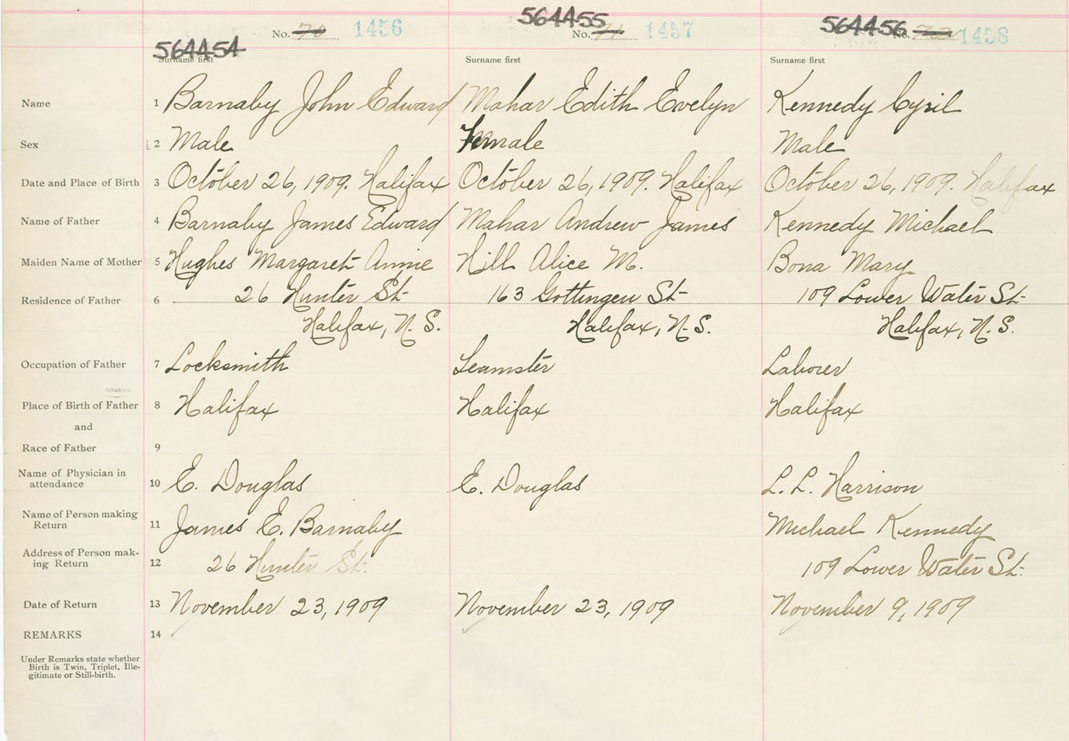 564454 No. 70 1456 564455 No. 71 1457 564456 1458
Surname first Surname first Surname first
Name 1 Barnaby John Edward Mahar Edith Evelyn Kennedy Cyril
Sex 2 Male Female Male
Date and Place of Birth 3 October 26, 1909. Halifax October 26, 1909. Halifax October 26, 1909. Halifax
Name of Father 4 Barnaby James Edward Mahar Andrew James Kennedy Michael
Maiden Name of Mother 5 Hughes Margaret Annie Hill Alice M. Bona Mary
Residence of Father 6 26 Hunter St. 163 Gottingen St. 109 Lower Water St.
Halifax, N.S. Halifax, N.S. Halifax, N.S.
Occupation of Father 7 Locksmith Teamster Laborer
Place of Birth of Father 8 Halifax Halifax Halifax
and
Race of Father 9
Name of Physician in
attendance 10 E. Douglas E. Douglas L. L. Harrison
Name of Person making
Return 11 James E. Barnaby Michael Kennedy
Address of Person mak-
ing Return 12 26 Hunter St. 109 Lower Water St.
Date of Return 13 November 23, 1909 November 23, 1909 November 9, 1909
REMARKS 14
Under Remarks state whether
Birth is Twin, Triplet, Ille-
gitimate or Still-birth.